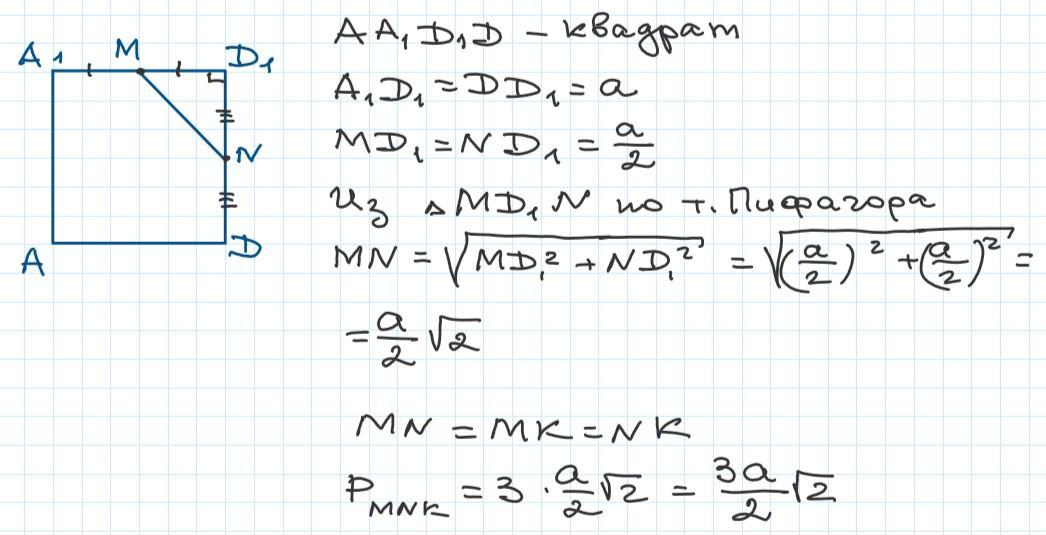 A₁ M D₁
N
A D
AA₁D₁D – квадрат
A₁D₁ = DD₁ = a
MD₁ = ND₁ = a/2
Из △MD₁N по т. Пифагора
MN = √(MD₁² + ND₁²) = √((a/2)² + (a/2)²) =
= a/2 √2
MN = MK = NK
P_MNK = 3 · a/2 √2 = 3a/2 √2